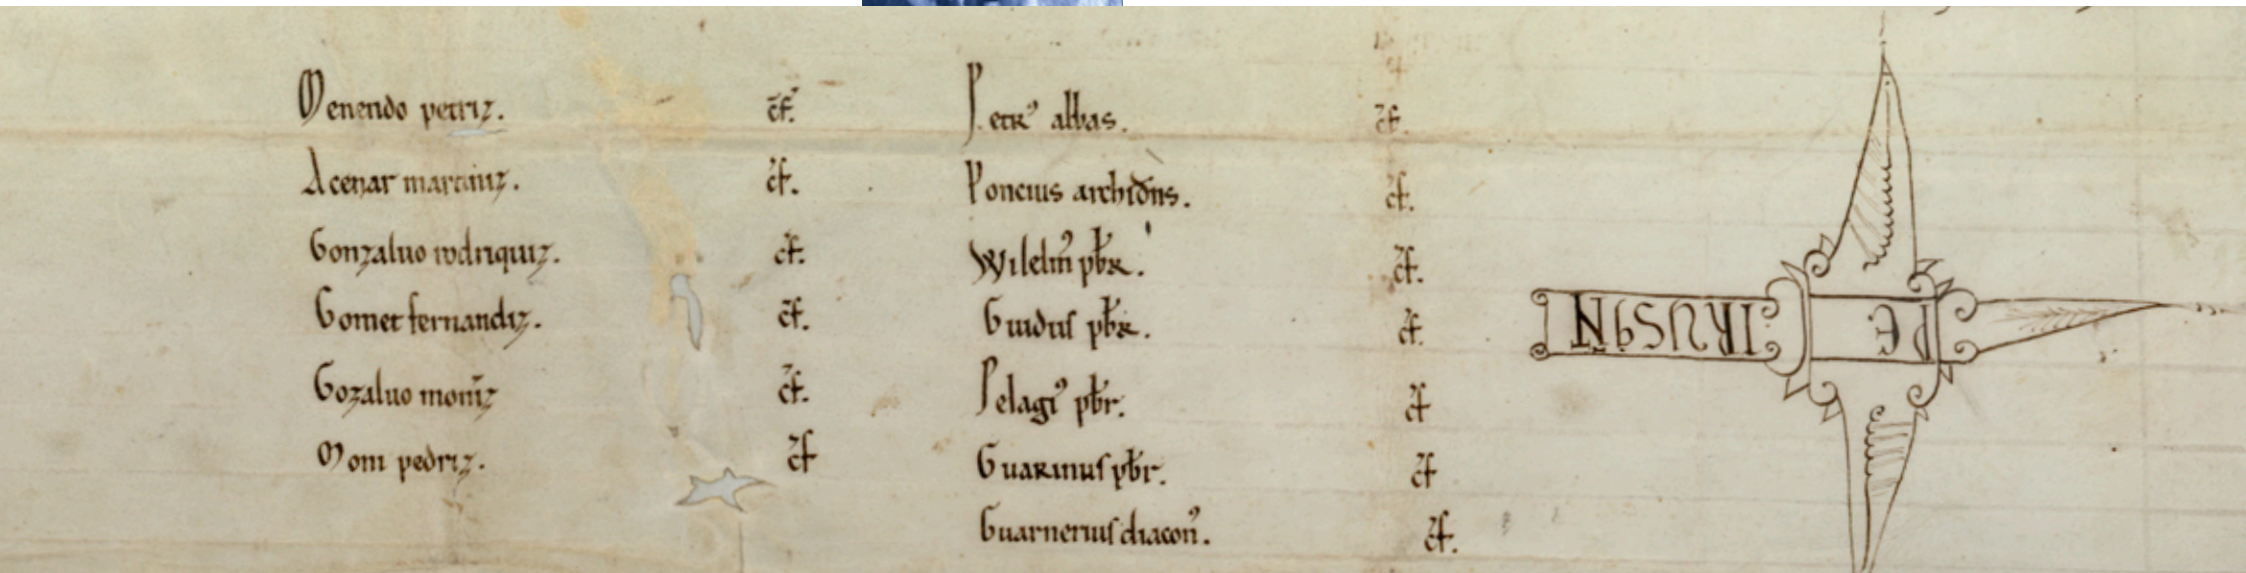 Menendo petriz. c̄f.
Acenar martiniz. c̄f.
Gonzaluo rodriquiz. c̄f.
Gomet fernandiz. c̄f.
Gozaluo moniz c̄f.
Moni pedriz. c̄f
Petrꝰ abbas. c̄f.
Poncius archidn̄s. c̄f.
Wilelm̄ pb̄r. c̄f.
Guidus pb̄r. c̄f.
Pelagiꝰ pb̄r. c̄f
Guarinus pb̄r. c̄f
Guarnerius diacon̄. c̄f.
PE TRUS